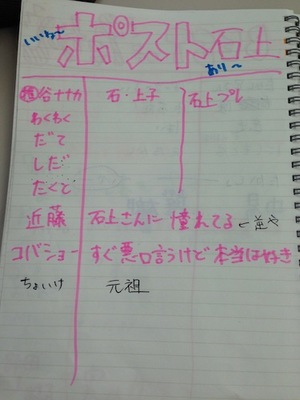 いいね〜
ポスト石上
あり〜
谷ナナカ 石・上子 石上プレ
わくわく
だて
しだ
たくと
近藤 石上さんに憧れてる ←並や
コバショー すぐ悪口言うけど本当は好き
ちょいけ 元祖